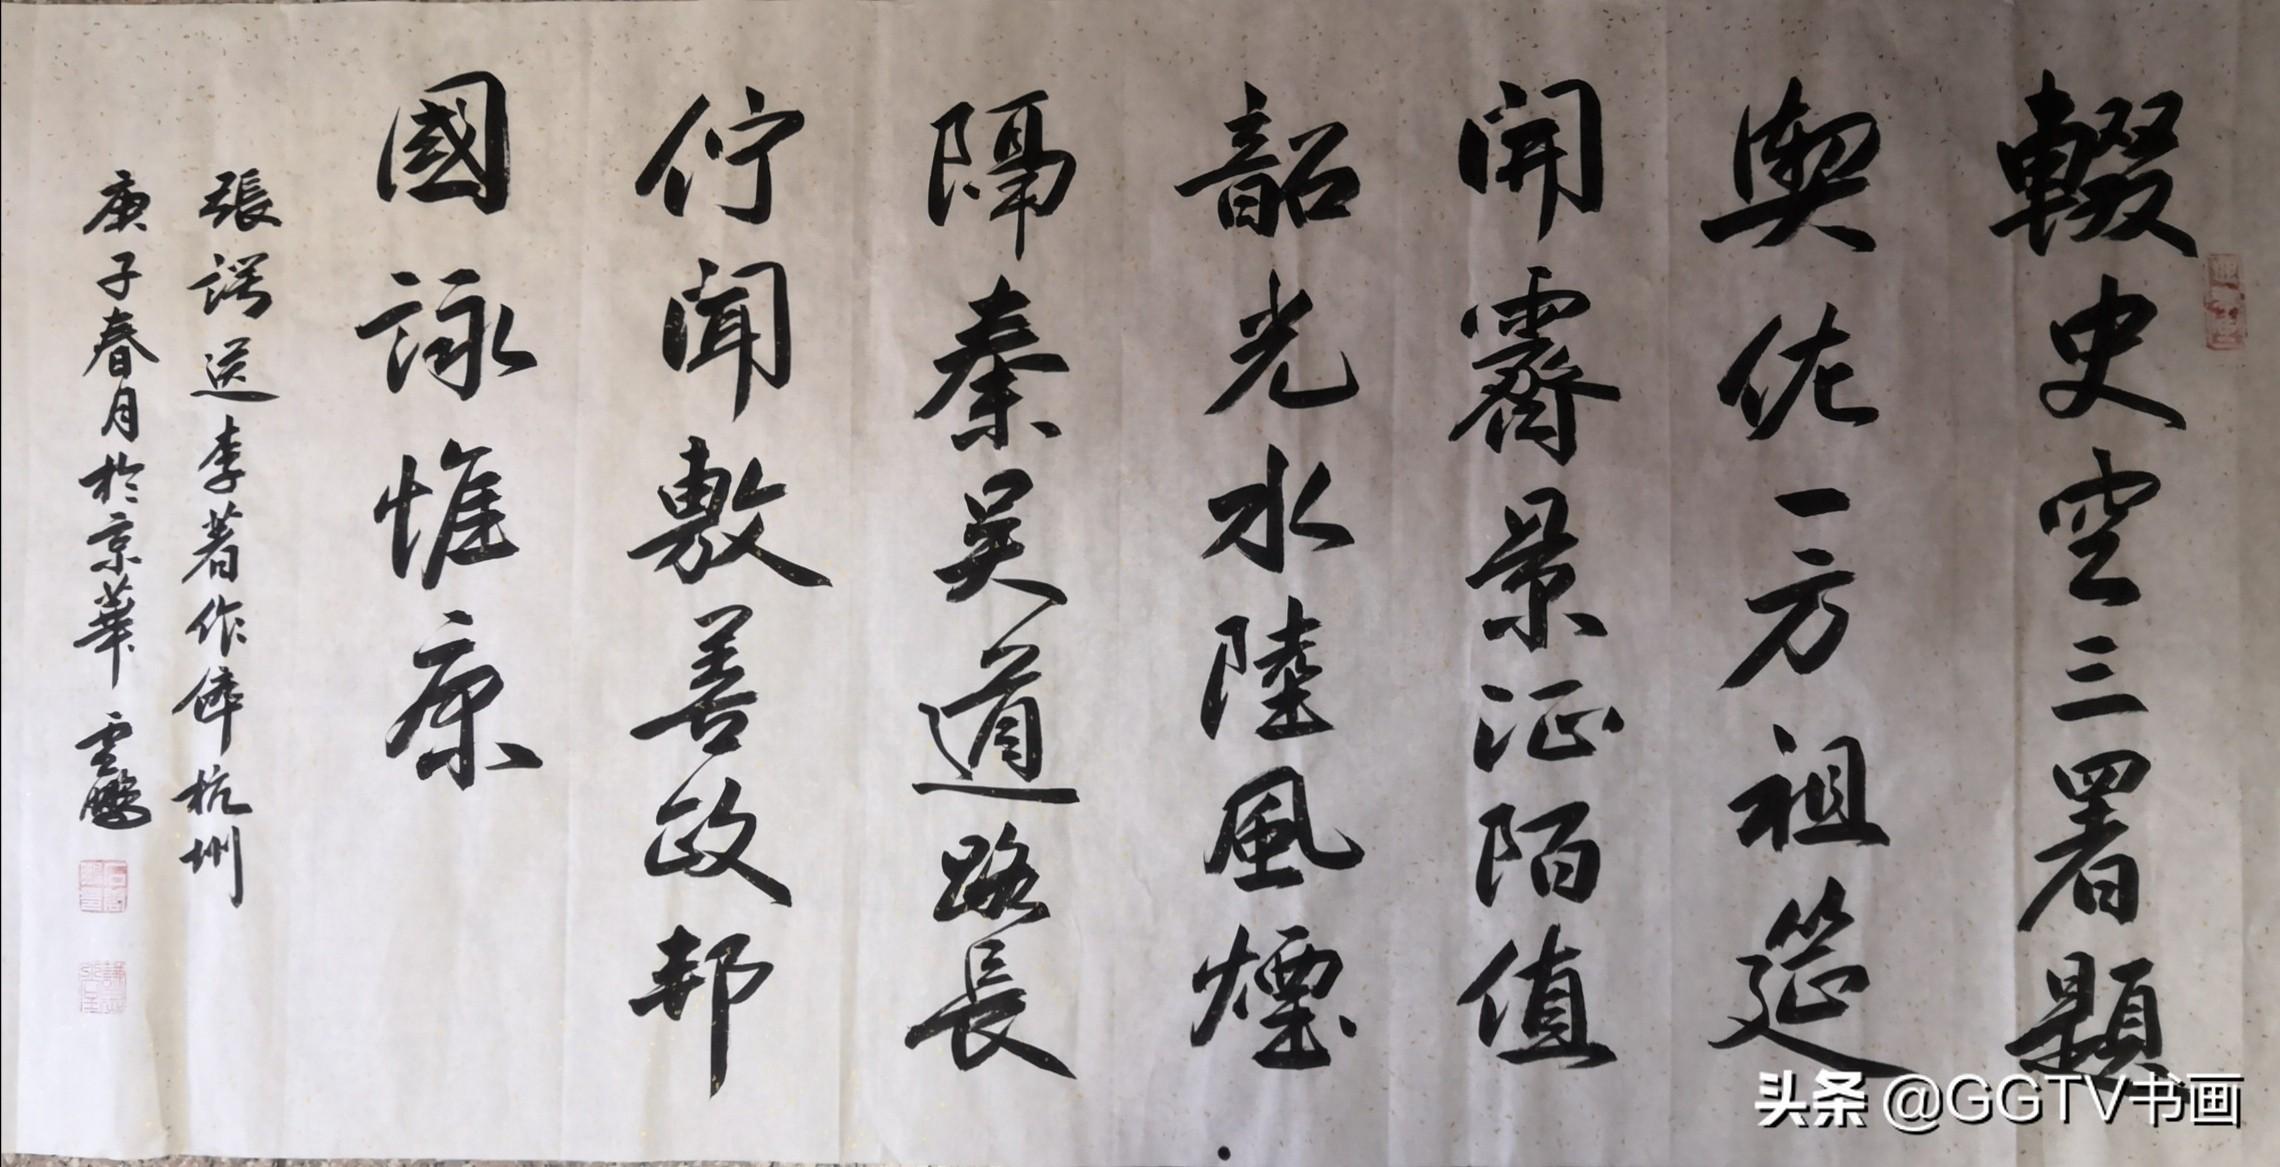 輟史空三署題
輿佐一方祖筵
開霽景征陌值
韶光水陸風煙
隔秦吳道路長
佇聞敷善政邦
國詠惟康
張諤送李著作倅杭州
庚子春月於京華 雲鵬
头条 @GGTV书画